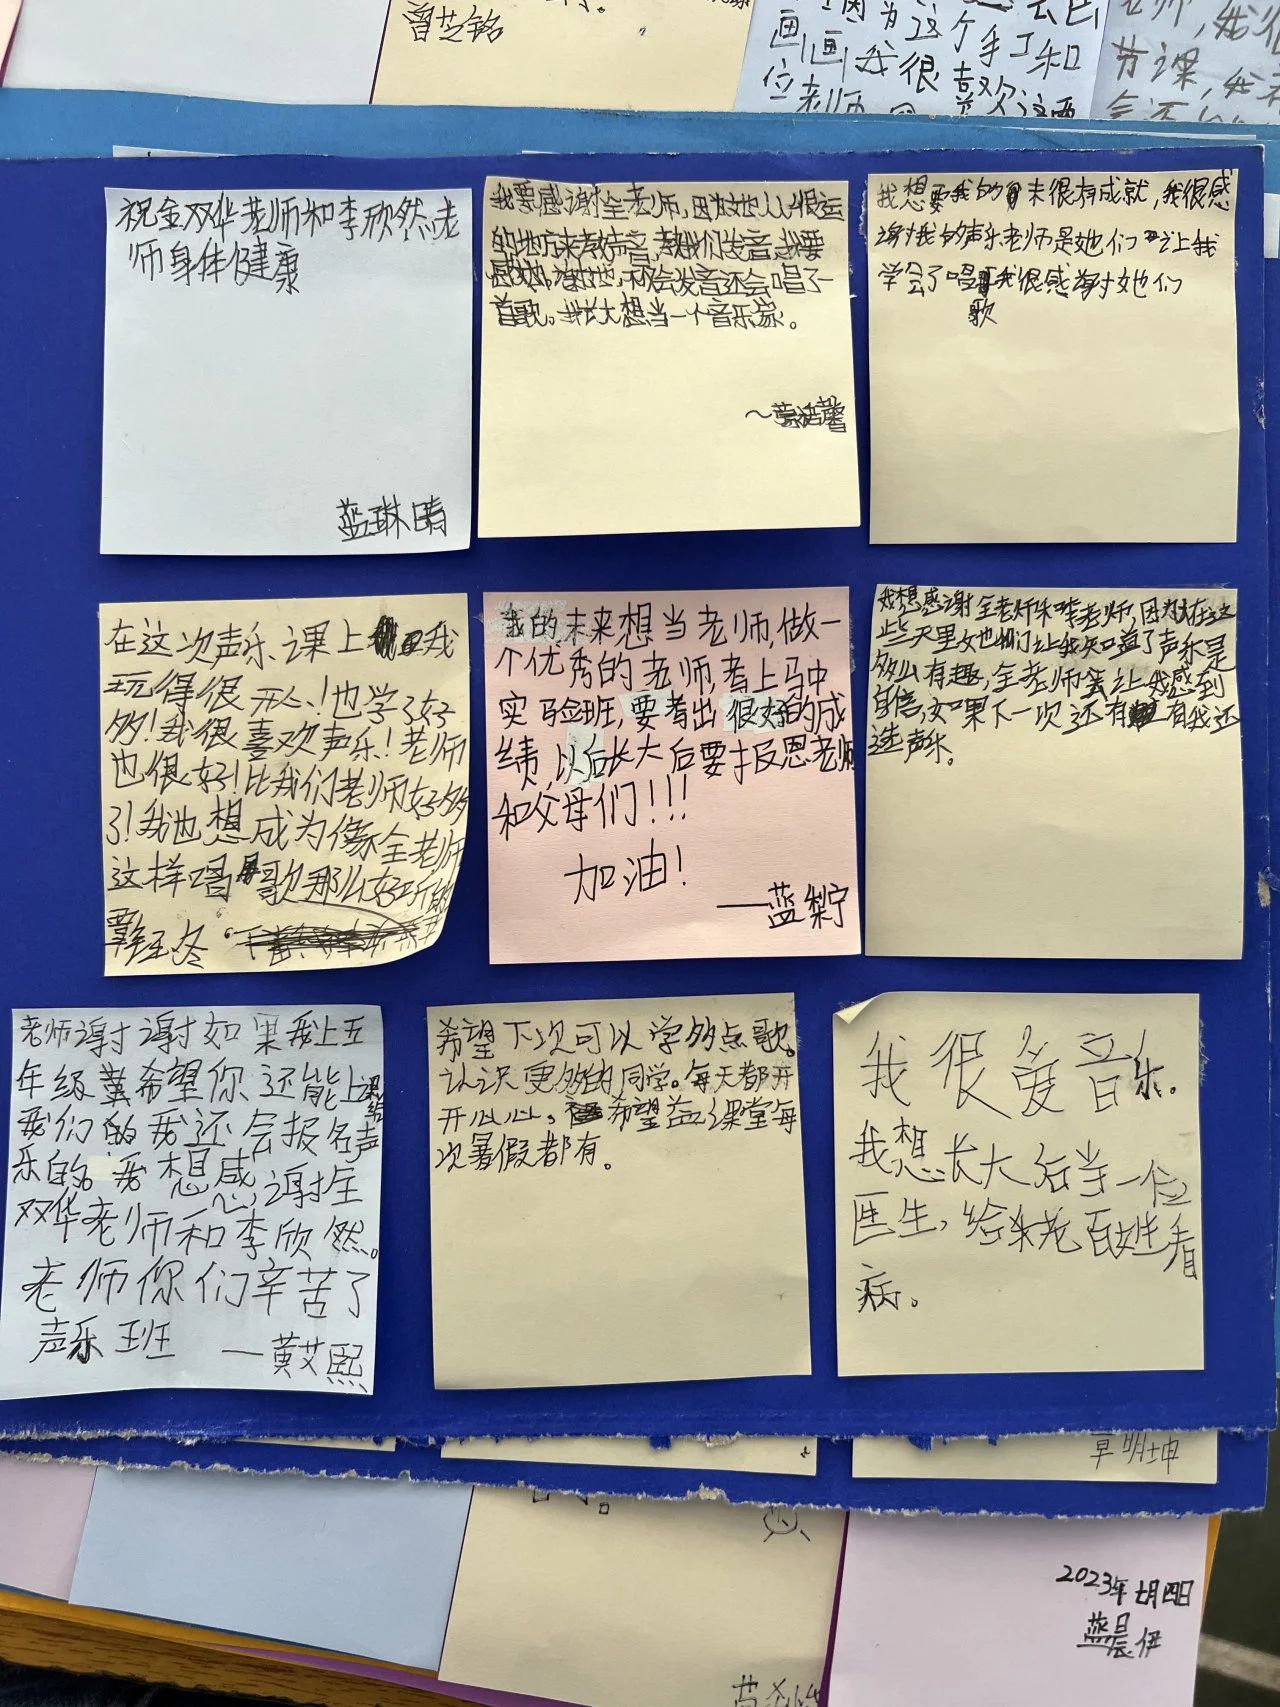 曾芝铭
画画我很喜欢这两
位老师
节课,我
祝金双华老师和李欣然老
师身体健康
蓝琳晴
我要感谢全老师,因为她从很远
的地方来教声音,教我们发音,我要
感谢她,不会发音还会唱了一
首歌。我长大想当一个音乐家。
我想要我的未来很有成就,我很感
谢我的声乐老师是她们让我
学会了唱我很感谢她们
歌
在这次声乐课上我
玩得很开心!也学了好
多!我很喜欢声乐!老师
也很好!比我们老师好多
了!我也想成为像全老师
这样唱歌那么好听的
覃玉冬
我的未来想当老师,做一
个优秀的老师,考上马中
实验班,要考出很好的成
绩,以后长大后要报恩老师
和父母们!!!
加油!
——蓝梨宁
我想感谢全老师和李老师,因为在这
些天里她们让我知道了声乐是
多么有趣,全老师会让我感到
自信,如果下一次还有我还
选声乐。
老师谢谢如果我上五
年级希望你还能上课给
我们的我还会报名声
乐的我想感谢全
双华老师和李欣然。
老师你们辛苦了
声乐班 ——黄艾熙
希望下次可以学多点歌。
认识更多的同学。每天都开
开心心。希望益课堂每
次暑假都有。
我很爱音乐。
我想长大后当一位
医生,给来老百姓看
病。
覃明坤
2023年七月四日
蓝晨伊